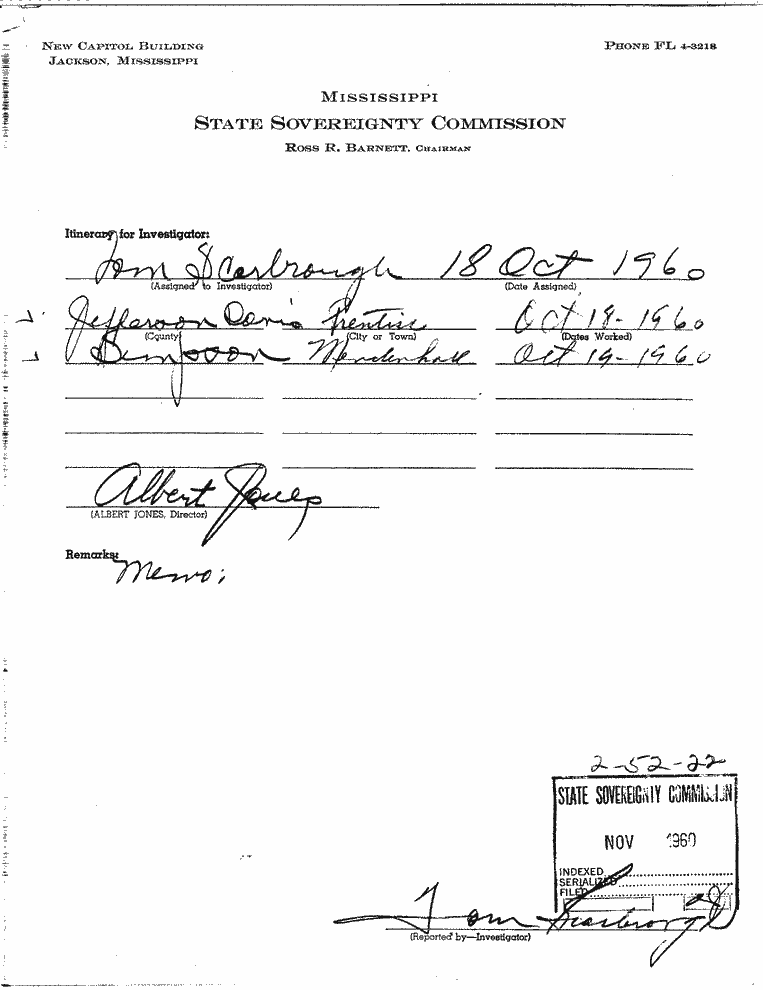 NEW CAPITOL BUILDING PHONE FL 4-3218
JACKSON, MISSISSIPPI
MISSISSIPPI
STATE SOVEREIGNTY COMMISSION
ROSS R. BARNETT, CHAIRMAN
Itinerary for Investigator:
Tom Scarbrough 18 Oct 1960
(Assigned to Investigator) (Date Assigned)
Jefferson Davis Prentiss Oct 18-1960
(County) (City or Town) (Dates Worked)
Simpson Mendenhall Oct 19-1960
Albert Jones
(ALBERT JONES, Director)
Remarks:
Memo:
2-52-22
STATE SOVEREIGNTY COMMISSION
NOV 1960
INDEXED
SERIALIZED
FILED
Tom Scarbrough
(Reported by—Investigator)